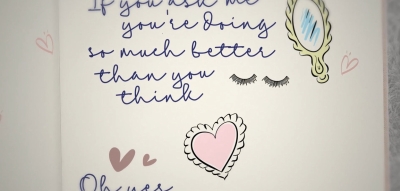 If you ask me
you're doing
so much better
than you
think
Oh yes